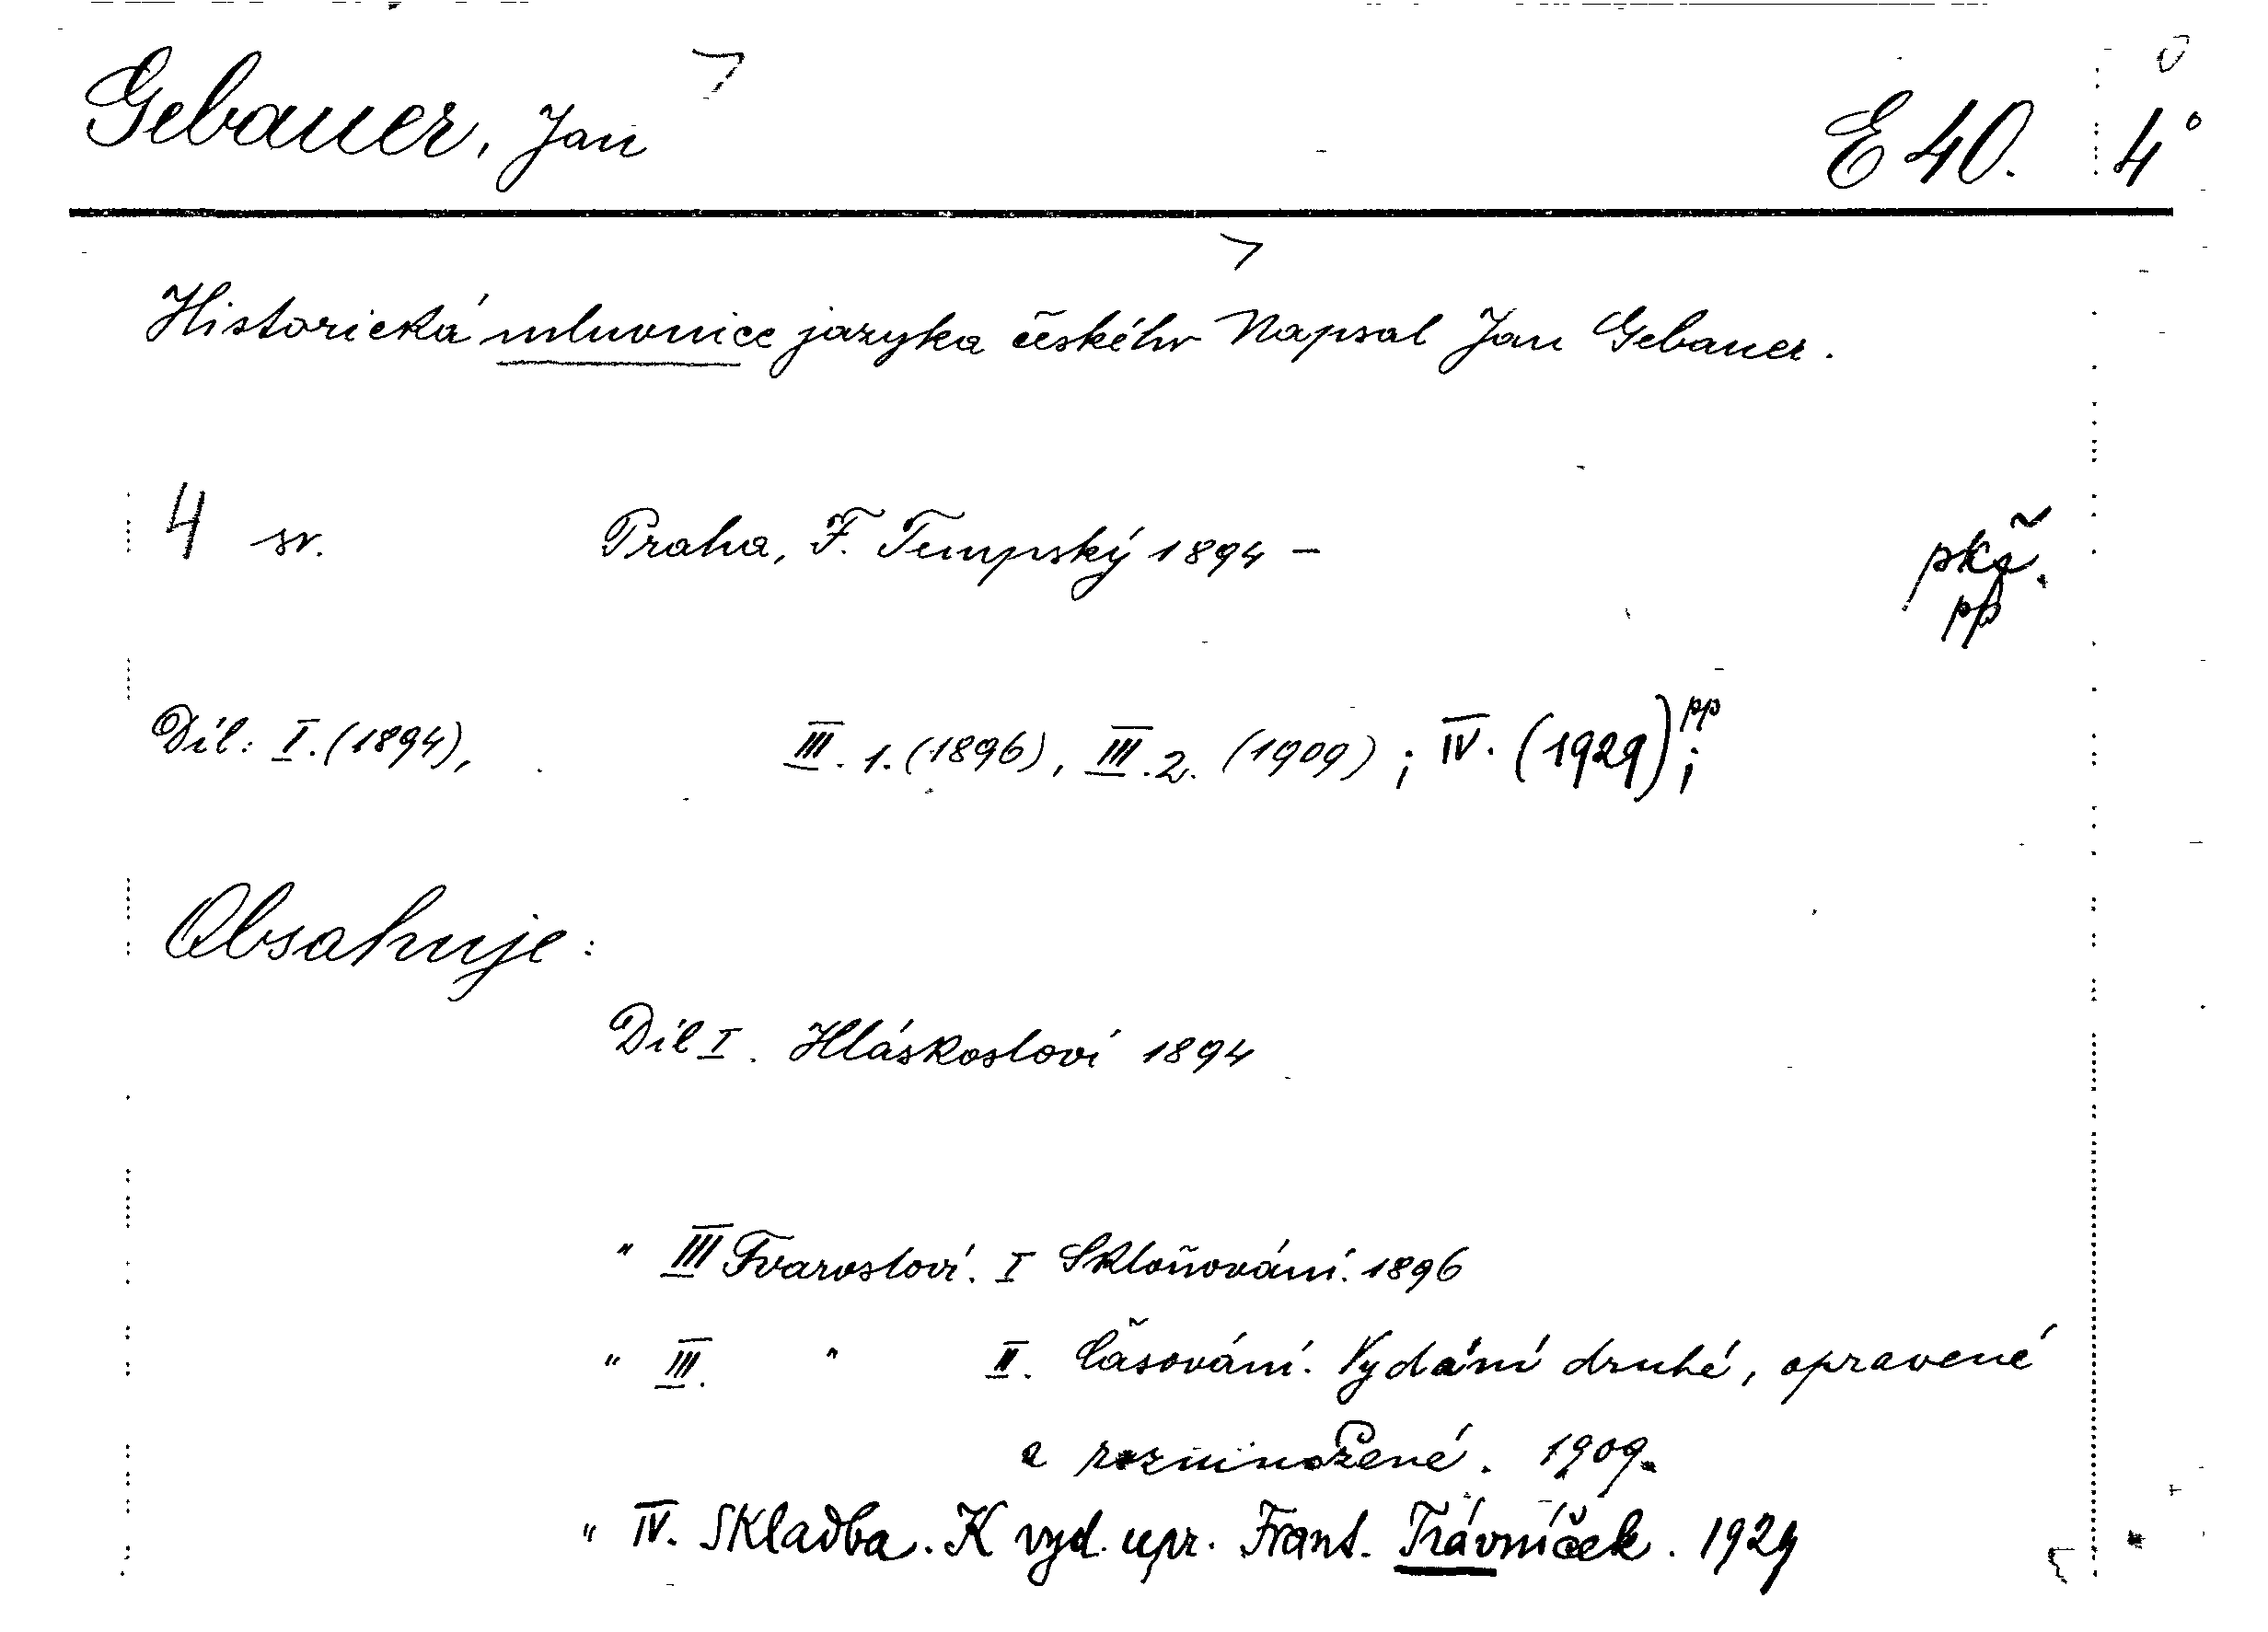 Gebauer, Jan E 40. 4°
Historická mluvnice jazyka českého Napsal Jan Gebauer.
4 sv. Praha, F. Tempský 1894 –
pkč.
pp
Díl: I. (1894), III. 1. (1896), III. 2. (1909) ; IV. (1929) pp ;
Obsahuje :
Díl I. Hláskosloví 1894
" III Tvarosloví. I Skloňování. 1896
" III. " II. Časování. Vydání druhé, opravené
a rozmnožené. 1909.
" IV. Skladba. K vyd. upr. Frant. Trávníček. 1929